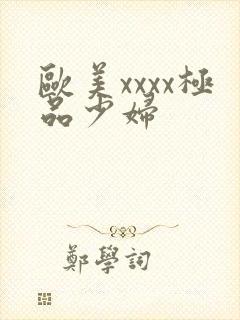 歐美xxxx極
品少婦
鄭學詞